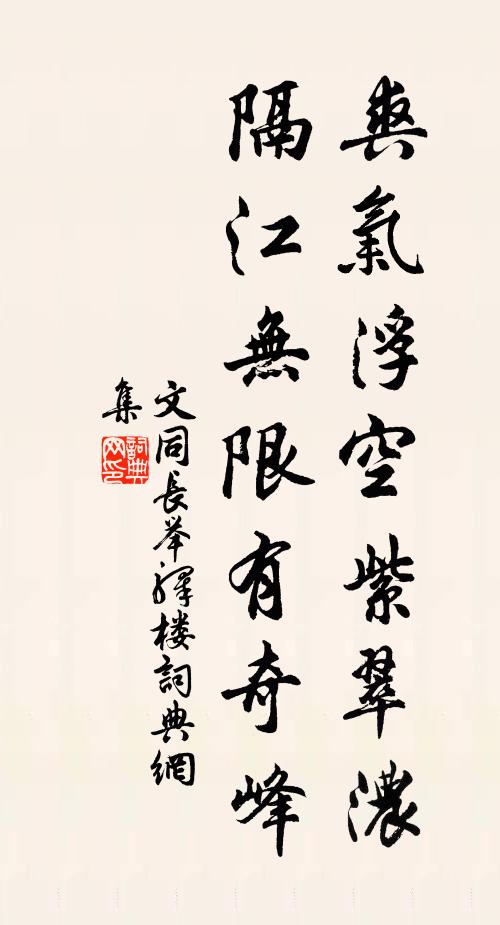 爽氣浮空紫翠濃
隔江無限有奇峰
文同長举驛楼詞典網
集
詞典網印